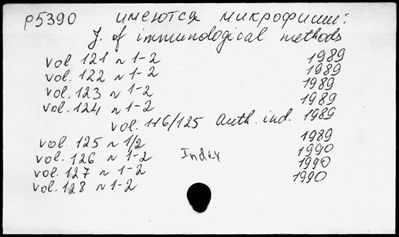 P5390 имеются микрофиши:
J. of immunological methods
vol 121 N 1-2 1989
vol. 122 N 1-2 1989
vol. 123 N 1-2 1989
vol. 124 N 1-2 1989
vol. 116/125 Auth. ind. 1989
vol. 125 N 1/2 1989
vol. 126 N 1-2 Index 1990
vol. 127 N 1-2 1990
vol. 128 N 1-2 1990